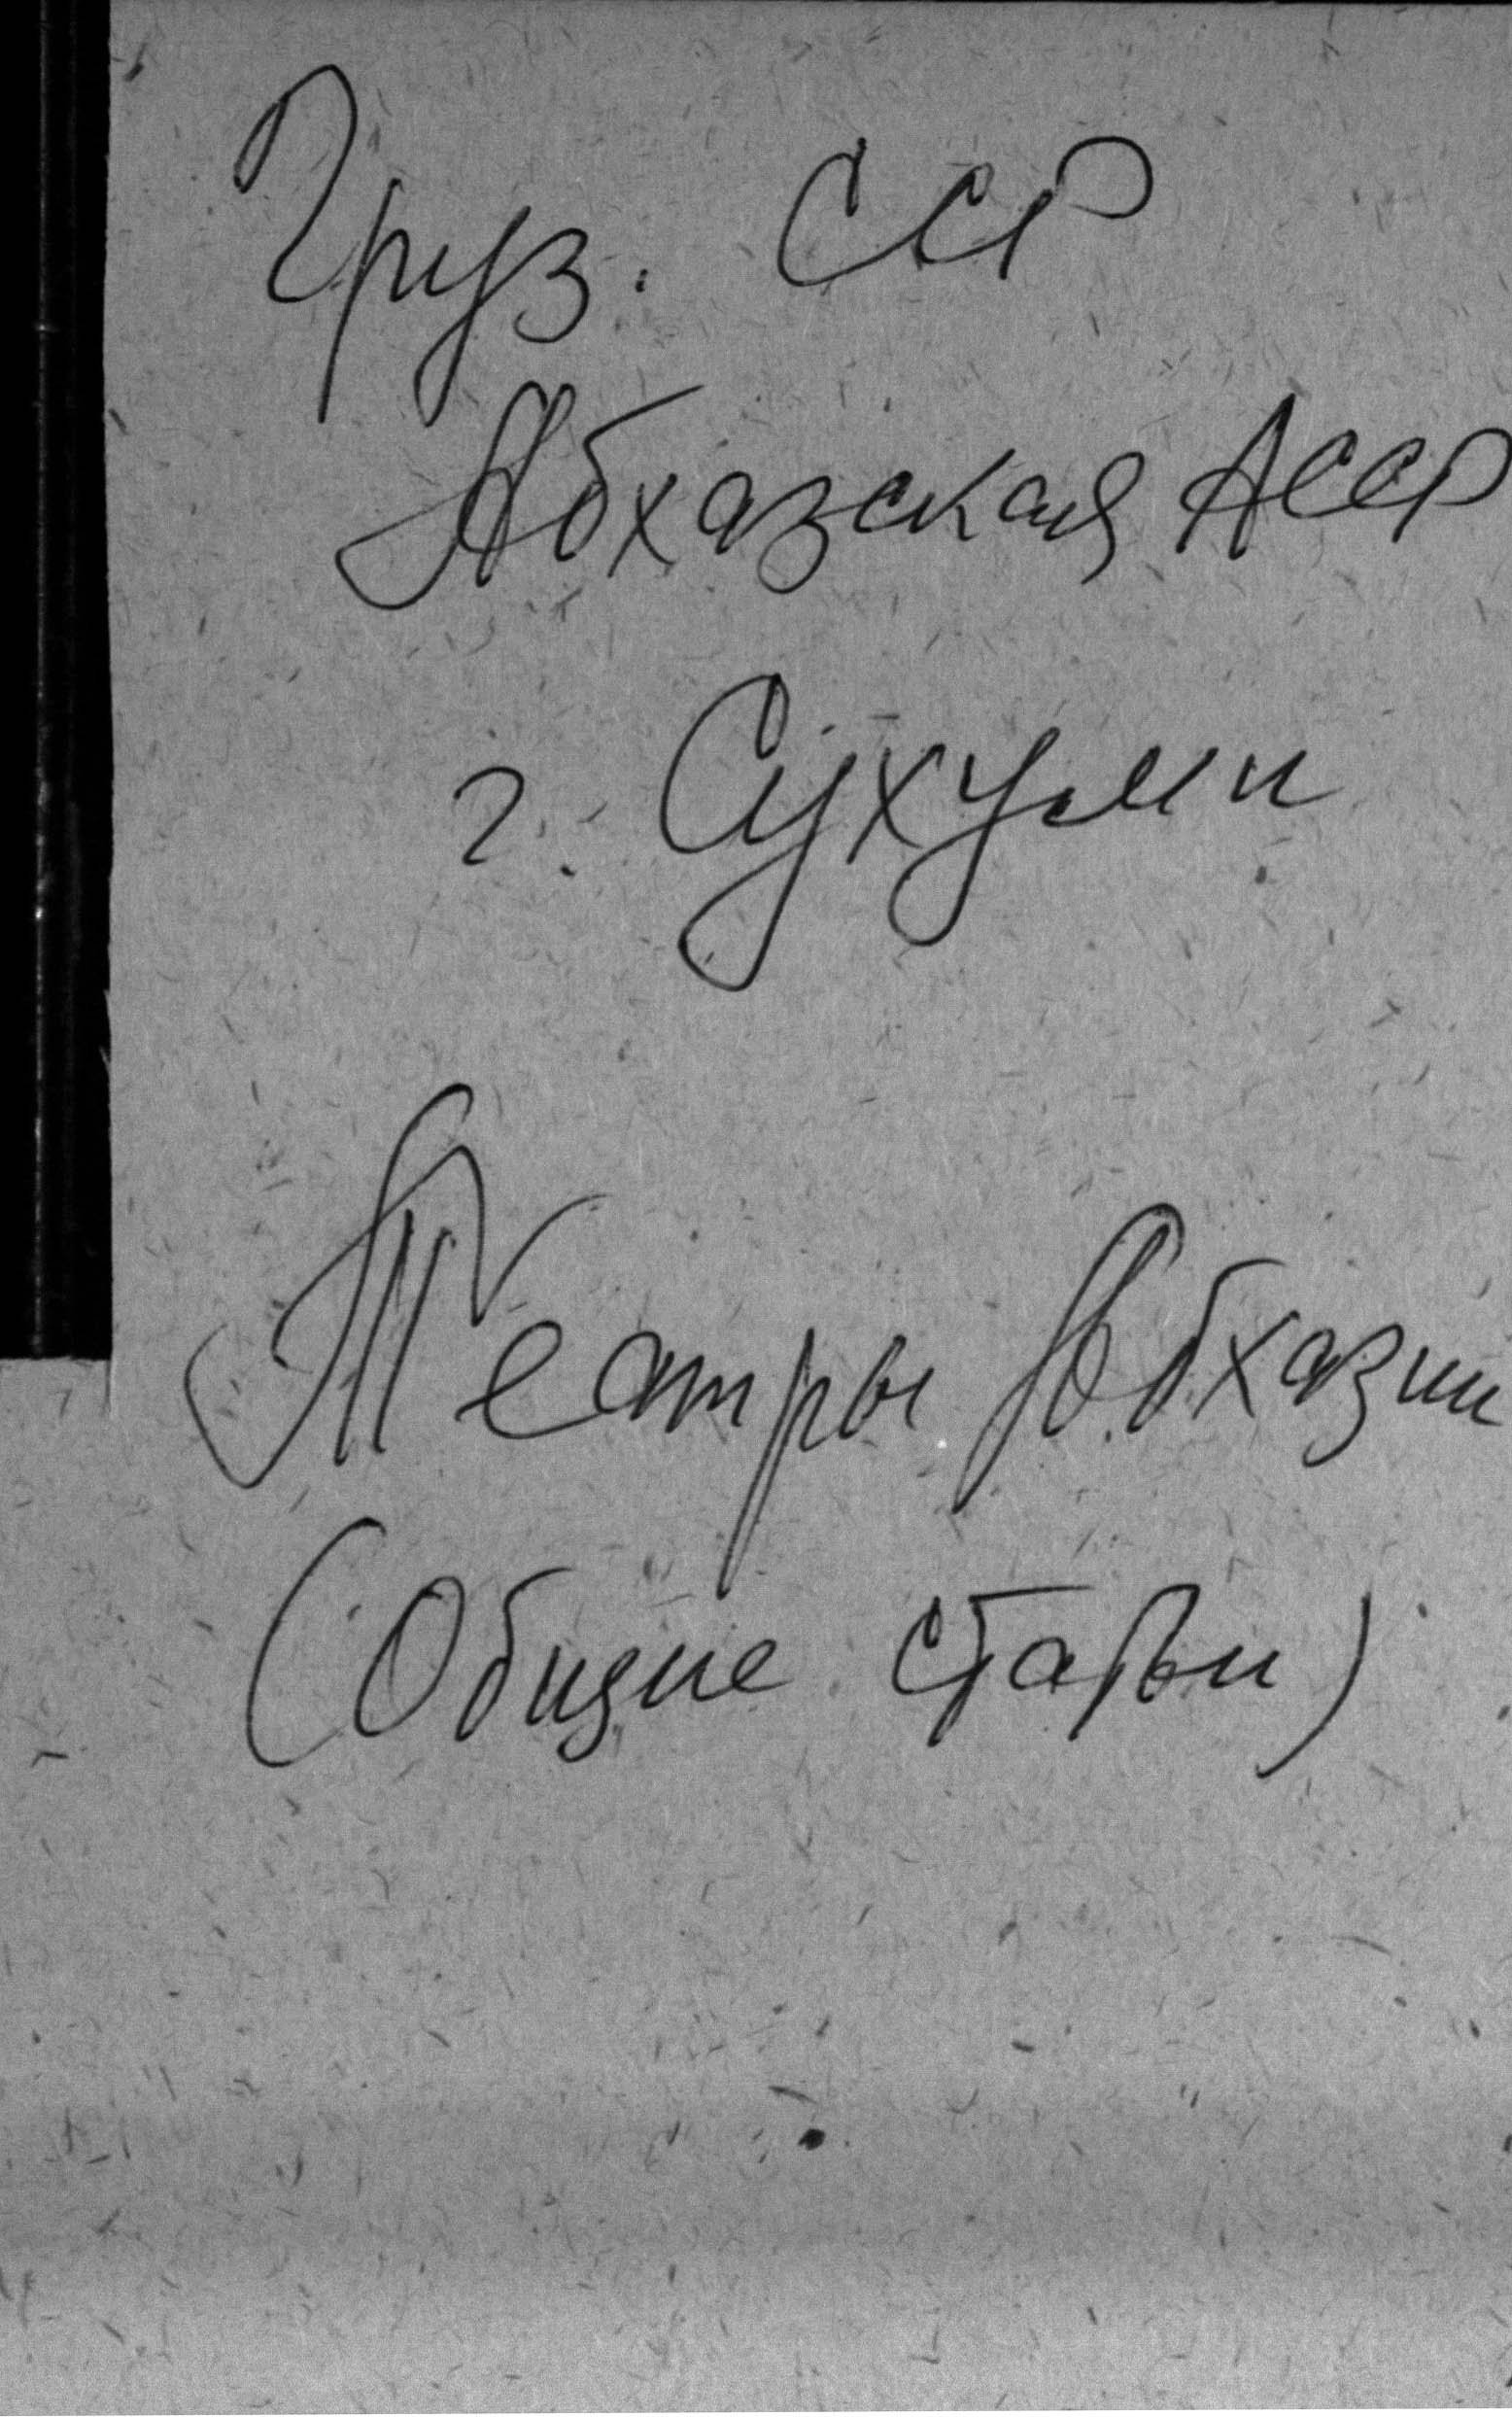 Груз. ССР
Абхазская АССР
г. Сухуми
Театры Абхазии
(Общие статьи)